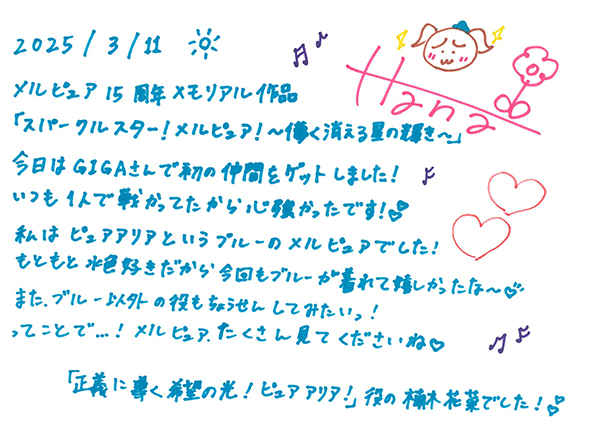 2025/3/11
Hana
メルピュア15周年メモリアル作品
「スパークルスター!メルピュア!~儚く消える星の輝き~」
今日はGIGAさんで初の仲間をゲットしました!
いつも1人で戦かってたから心強かったです!
私はピュアアリアというブルーのメルピュアでした!
もともと水色好きだから今回もブルーが着れて嬉しかったな~♡
また、ブルー以外の役もちょうせんしてみたいっ!
ってことで…!メルピュア、たくさん見てくださいね♡
「正義に導く希望の光!ピュアアリア!」役の 楠木花菜でした!